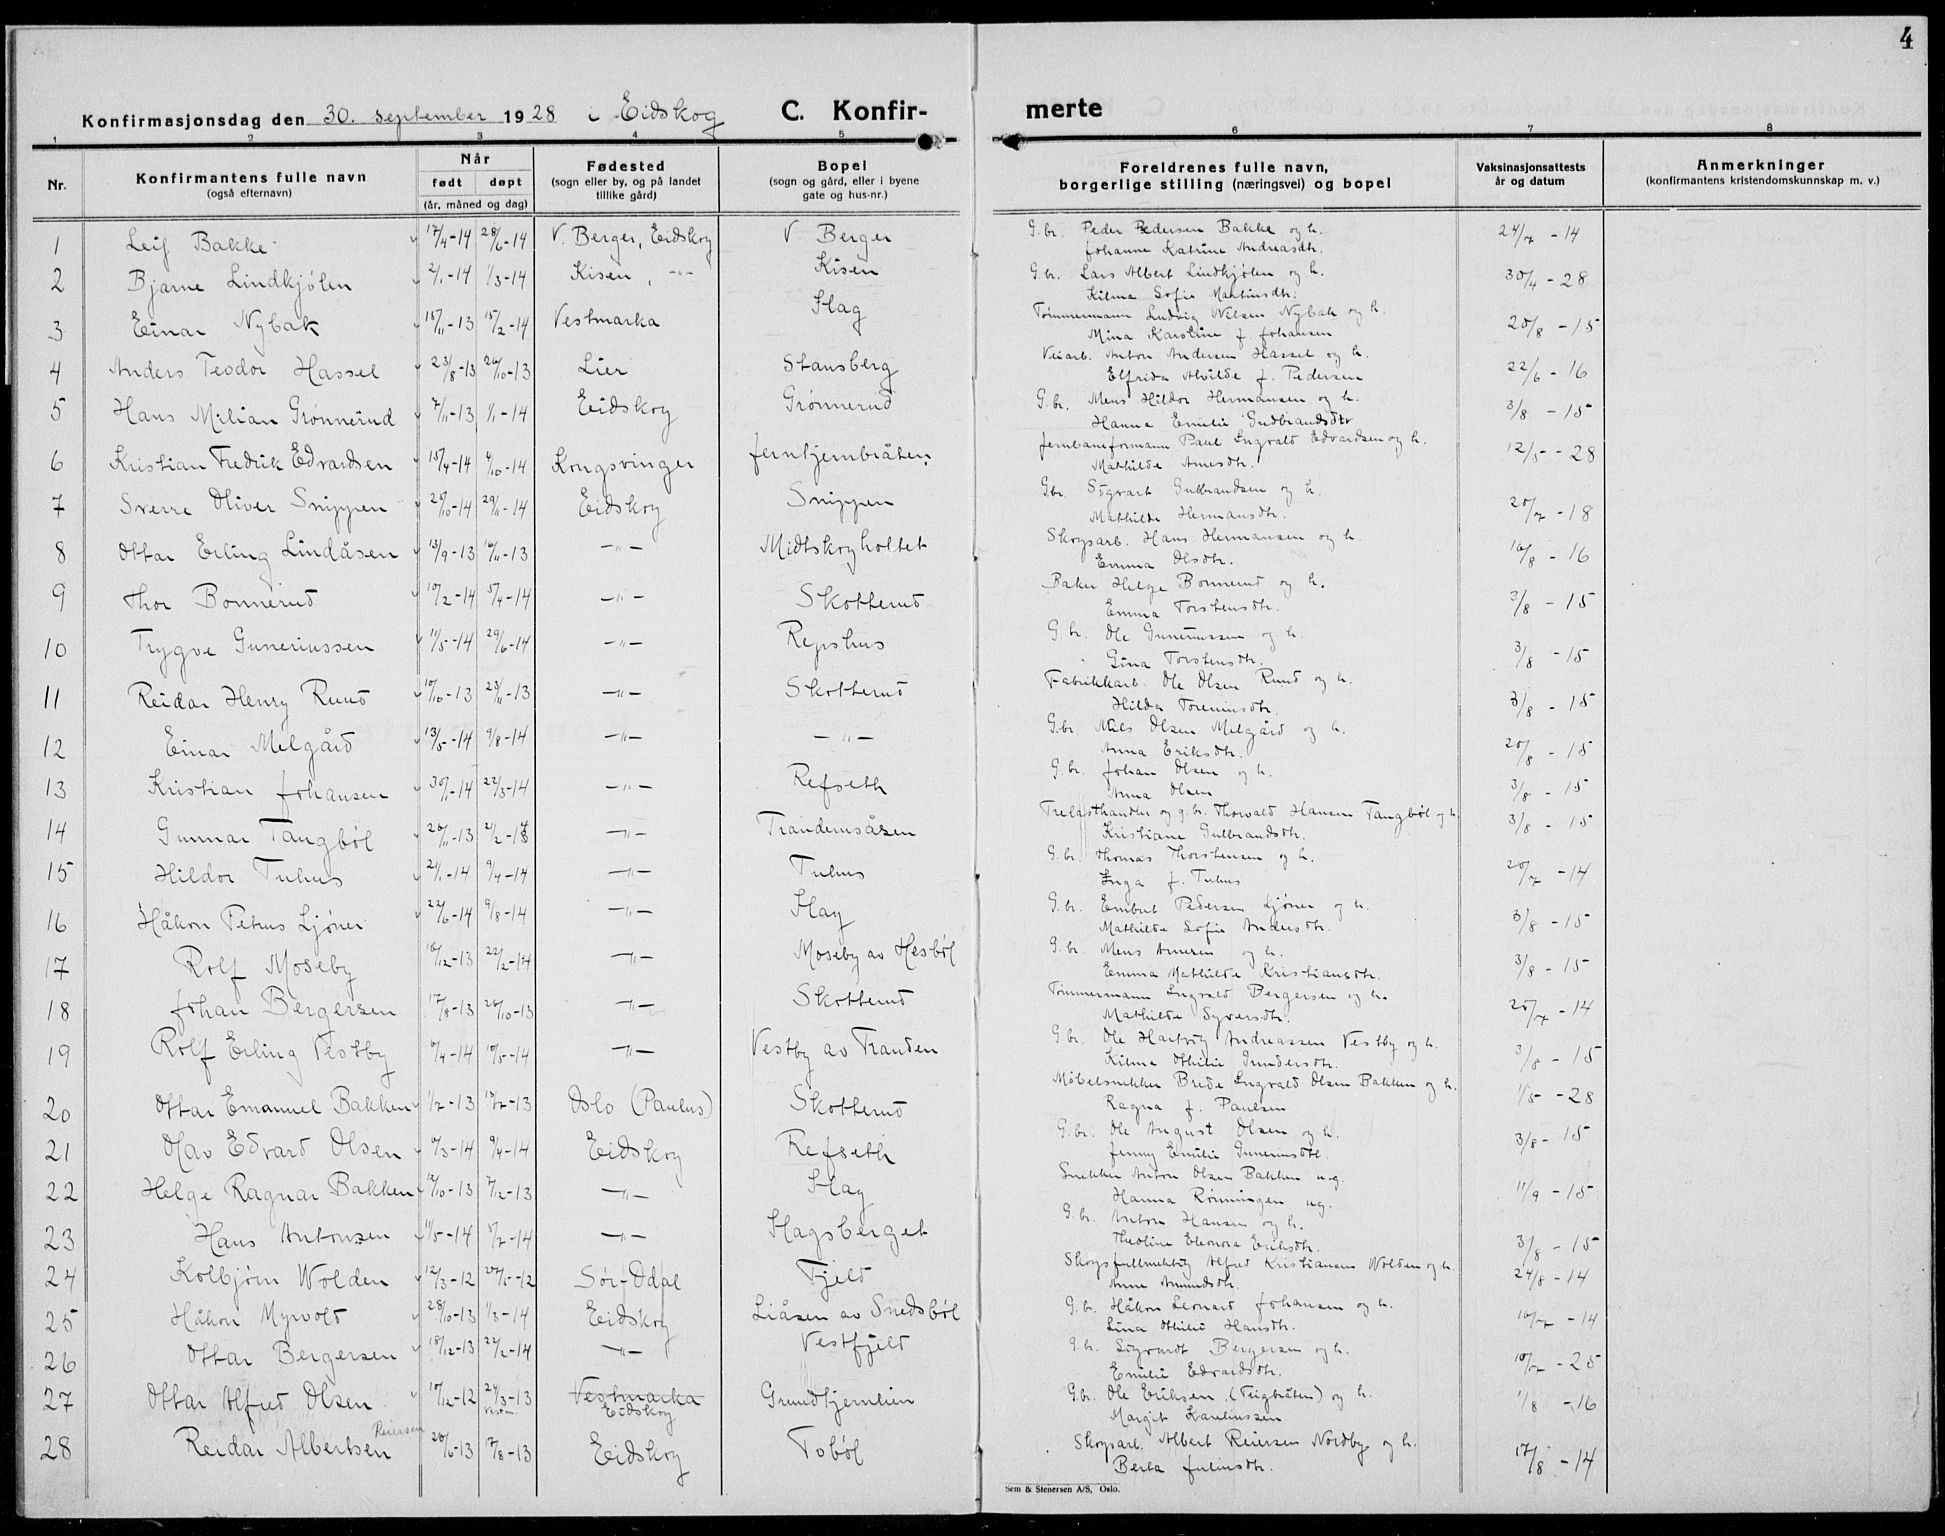 4
Konfirmasjonsdag den 30. september 1928 i Eidskog C. Konfirmerte
1 2 3 4 5 6 7 8
Nr. Konfirmantens fulle navn (også efternavn) Når født døpt (år, måned og dag) Fødested (sogn eller by, og på landet tillike gård) Bopel (sogn og gård, eller i byene gate og hus-nr.) Foreldrenes fulle navn, borgerlige stilling (næringsvei) og bopel Vaksinasjonsattests år og datum Anmerkninger (konfirmantens kristendomskunnskap m. v.)
1 Leif Bakke 17/4-14 28/6-14 V. Berger, Eidskog V Berger G.br. Peder Pedersen Bakke og h. Johanne Katrine Andreasdtr. 24/7-14
2 Bjarne Lindkjølen 2/1-14 1/3-14 Kisen, -"- Kisen G.br. Lars Albert Lindkjølen og h. Kilma Sofie Martinsdtr. 30/4-28
3 Einar Nybak 15/11-13 15/2-14 Vestmarka Slag Tømmermann Ludvig Nilsen Nybak og h. Mina Karoline f. Johansen 20/8-15
4 Anders Teodor Hassel 23/8-13 26/10-13 Lier Stansberg Veiarb. Anton Andersen Hassel og h. Elfrida Alvilde f. Pedersen 22/6-16
5 Hans Milian Grønnerud 7/11-13 1/1-14 Eidskog Grønnerud G.br. Mens Hildor Hermansen og h. Hanna Emilie Gudbrandsdtr 3/8-15
6 Kristian Fredrik Edvardsen 15/4-14 4/10-14 Kongsvinger Jerntjernbråten Jernbaneformann Paul Ingvald Edvardsen og h. Mathilde Arnesdtr. 12/5-28
7 Sverre Oliver Snippen 20/10-14 29/11-14 Eidskog Snippen G.br. Sigvart Gulbrandsen og h. Mathilde Hermansdtr. 20/7-18
8 Ottar Erling Lindåsen 13/9-13 16/11-13 -"- Midtskogholtet Skogsarb. Hans Hermansen og h. Emma Olsdtr. 16/8-16
9 Thor Bonnerud 10/2-14 5/4-14 -"- Skotterud Baker Helge Bonnerud og h. Emma Torstensdtr. 3/8-15
10 Trygve Guneriussen 11/5-14 29/6-14 -"- Repshus G.br. Ole Guneriussen og h. Gina Torstensdtr. 3/8-15
11 Reidar Henry Ruud 10/10-13 23/11-13 -"- Skotterud Fabrikkarb. Ole Olsen Ruud og h. Hilda Toreniusdtr. 3/8-15
12 Einar Melgård 13/5-14 9/8-14 -"- -"- G.br. Nils Olsen Melgård og h. Anna Eriksdtr. 20/8-15
13 Kristian Johansen 30/1-14 22/3-14 -"- Refseth G.br. Johan Olsen og h. Anna Olsen 3/8-15
14 Gunnar Tangbøl 20/11-13 2/2-14 -"- Trandemsåsen Trelasthandler og g.br. Thorvald Hansen Tangbøl og h. Kristiane Gulbrandsdtr. 3/8-15
15 Hildor Tuhus 21/1-14 9/4-14 -"- Tuhus G.br. Thomas Thorstensen og h. Inga f. Tuhus 20/7-14
16 Håkon Petrus Ljøner 22/6-14 9/8-14 -"- Slag G.br. Embret Pedersen Ljøner og h. Mathilde Sofie Andersdtr. 3/8-15
17 Rolf Moseby 16/12-13 22/2-14 -"- Moseby av Hesbøl G.br. Mens Arnesen og h. Emma Mathilde Kristiansdtr. 3/8-15
18 Johan Bergersen 17/8-13 26/10-13 -"- Skotterud Tømmermann Ingvald Bergersen og h. Mathilde Syversdtr. 20/7-14
19 Rolf Erling Vestby 6/4-14 10/5-14 -"- Vestby av Tranden G.br. Ole Hartvig Andreassen Vestby og h. Kilma Othilie Gundersdtr. 3/8-15
20 Ottar Emanuel Bakken 1/2-13 13/7-13 Oslo (Paulus) Skotterud Møbelsnekker Brede Ingvald Olsen Bakken og h. Ragna f. Paulsen 11/5-28
21 Olav Edvard Olsen 6/3-14 9/4-14 Eidskog Refseth G.br. Ole August Olsen og h. Jenny Emilie Guneriusdtr. 3/8-15
22 Helge Ragnar Bakken 12/10-13 7/12-13 -"- Slag Snekker Anton Olsen Bakken ug. Hanna Rønningen ug. 11/9-15
23 Hans Antonsen 11/5-14 5/7-14 -"- Slagsberget G.br. Anton Hansen og h. Theoline Eleonora Eriksdtr. 3/8-15
24 Kolbjørn Wolden 12/3-12 27/5-12 Sør-Odal Fjeld Skogsfullmektig Alfred Kristiansen Wolden og h. Anne Amundsdtr. 24/8-14
25 Håkon Myrvold 28/10-13 1/3-14 Eidskog Liåsen av Snedsbøl G.br. Håkon Leonard Johansen og h. Lina Othilie Hansdtr. 10/7-14
26 Ottar Bergersen 18/12-13 22/2-14 -"- Vestfjeld G.br. Sigvardt Bergersen og h. Emilie Edvardsdtr. 10/7-25
27 Ottar Alfred Olsen 10/12-12 24/3-13 Vestm. Vestmarka Eidskog Grundtjernlien G.br. Ole Eriksen (Teigbråten) og h. Margit Karelinssen 1/8-16
28 Reidar Albertsen Reiersen 20/6-13 17/8-13 Eidskog Tobøl Skogsarb. Albert Reiersen Nordby og h. Berta Juliusdtr. 17/8-14
Sem & Stenersen A/S, Oslo.